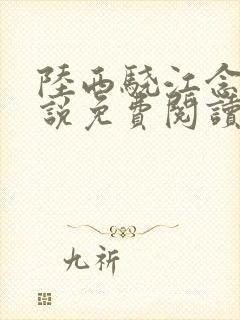 陸西驍江念
說免費閱讀
九祈